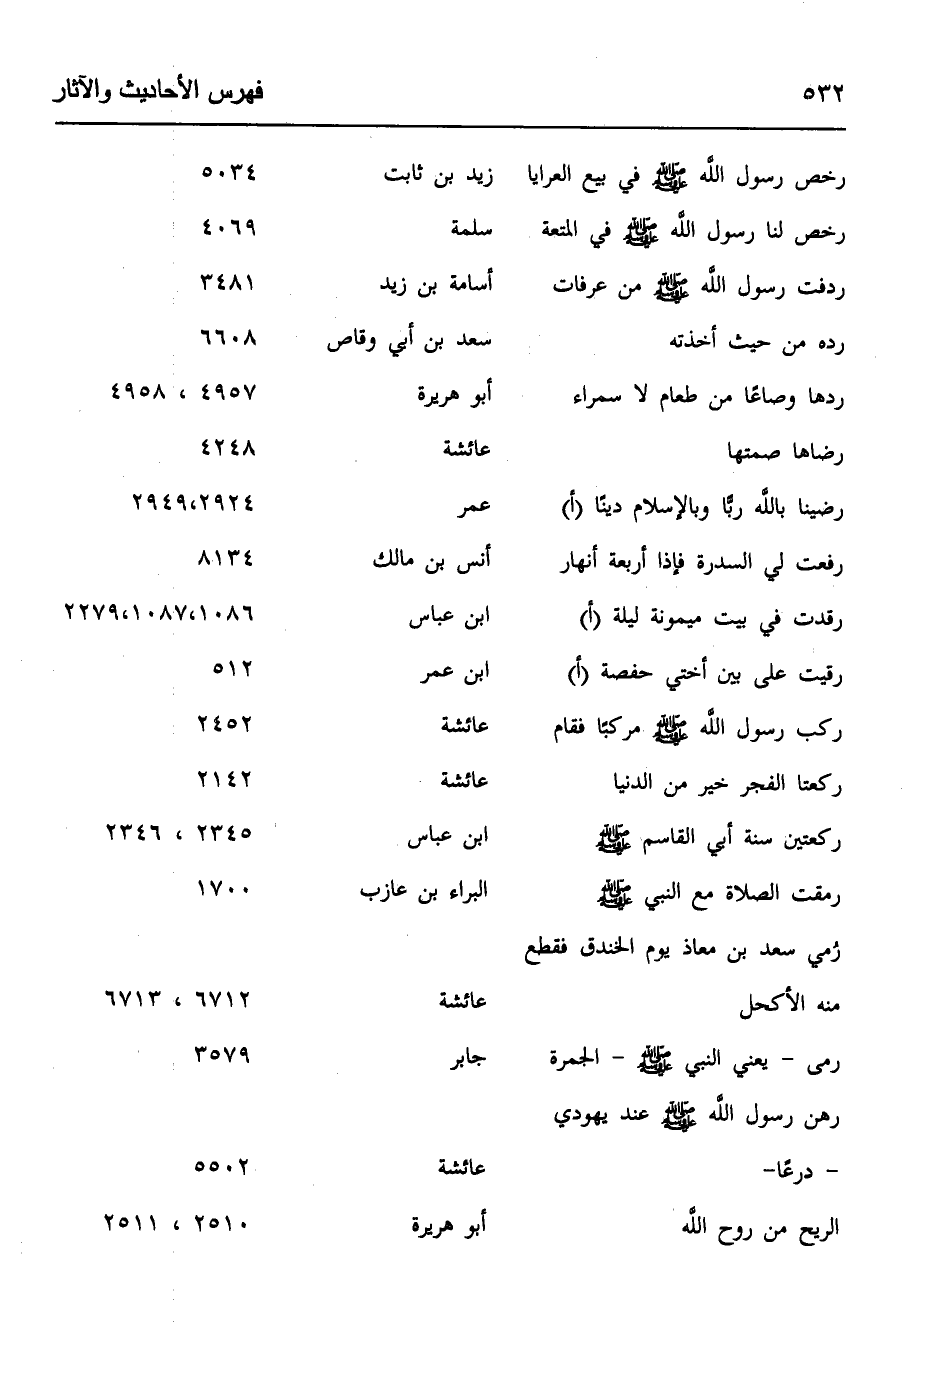 ٥٣٢ فهرس الأحاديث والآثار
رخص رسول اللَّه ﷺ في بيع العرايا زيد بن ثابت ٥٠٣٤
رخص لنا رسول اللَّه ﷺ في المتعة سلمة ٤٠٦٩
ردفت رسول اللَّه ﷺ من عرفات أسامة بن زيد ٣٤٨١
رده من حيث أخذته سعد بن أبي وقاص ٦٦٠٨
ردها وصاعًا من طعام لا سمراء أبو هريرة ٤٩٥٧ ، ٤٩٥٨
رضاها صمتها عائشة ٤٢٤٨
رضينا باللَّه ربًّا وبالإسلام دينًا (أ) عمر ٢٩٢٤،٢٩٤٩
رفعت لي السدرة فإذا أربعة أنهار أنس بن مالك ٨١٣٤
رقدت في بيت ميمونة ليلة (أ) ابن عباس ١٠٨٦،١٠٨٧،٢٢٧٩
رقيت على بين أختي حفصة (أ) ابن عمر ٥١٢
ركب رسول اللَّه ﷺ مركبًا فقام عائشة ٢٤٥٢
ركعتا الفجر خير من الدنيا عائشة ٢١٤٢
ركعتين سنة أبي القاسم ﷺ ابن عباس ٢٣٤٥ ، ٢٣٤٦
رمقت الصلاة مع النبي ﷺ البراء بن عازب ١٧٠٠
رُمي سعد بن معاذ يوم الخندق فقطع
منه الأكحل عائشة ٦٧١٢ ، ٦٧١٣
رمى - يعني النبي ﷺ - الجمرة جابر ٣٥٧٩
رهن رسول اللَّه ﷺ عند يهودي
- درعًا- عائشة ٥٥٠٢
الريح من روح اللَّه أبو هريرة ٢٥١٠ ، ٢٥١١